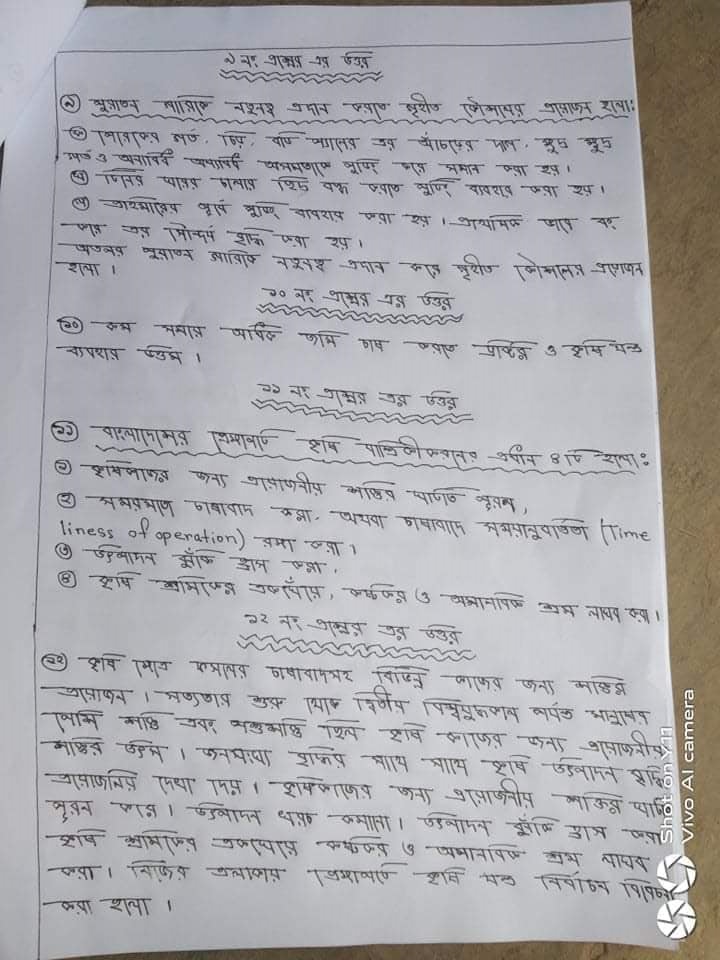 ৯ নং প্রশ্নের এর উত্তর
৯ পুরাতন বাড়িকে নতুনত্ব প্রদান করতে গৃহীত কৌশলের প্রয়োজন হলো:
গর্ত, চিড়, এর আঁচড়ের দাগ, ক্ষুদ্র ক্ষুদ্র
গর্ত ও অন্যান্য পুটিং করে সমান করা হয়।
টিনের ঘরের চালার ছিদ্র বন্ধ করতে পুটিং ব্যবহার করা হয়।
পূর্বে পুটিং ব্যবহার করা হয়। প্রাথমিক ভাবে রং
করে এর সৌন্দর্য বৃদ্ধি করা হয়।
অতএব পুরাতন নতুনত্ব প্রদান করে গৃহীত কৌশলের প্রয়োজন
হলো।
১০ নং প্রশ্নের এর উত্তর
১০ কম সময়ে অধিক জমি চাষ করতে ও কৃষি যন্ত্র
ব্যবহার উত্তম।
১১ নং প্রশ্নের এর উত্তর
১১ বাংলাদেশের প্রেক্ষাপটে কৃষি যান্ত্রিকীকরণের ৪টি হলো:
১ কৃষিকাজের জন্য প্রয়োজনীয় শক্তির ঘাটতি পূরণ,
২ সময়মতো চাষাবাদ করা, অথবা চাষাবাদে সময়ানুবর্তিতা (Time
liness of operation) রক্ষা করা।
৩ উৎপাদন ঝুঁকি হ্রাস করা,
৪ কৃষি শ্রমিকের একঘেঁয়ে, কষ্টকর ও অমানবিক শ্রম লাঘব করা।
১২ নং প্রশ্নের এর উত্তর
১২ কৃষি ক্ষেত্রে ফসলের চাষাবাদসহ বিভিন্ন কাজের জন্য শক্তির
প্রয়োজন। সভ্যতার শুরু থেকে দ্বিতীয় বিশ্বযুদ্ধকাল পর্যন্ত মানুষের
পেশি শক্তি এবং পশুশক্তি ছিল কৃষি কাজের জন্য প্রয়োজনীয়
শক্তির উৎস। জনসংখ্যা বৃদ্ধির সাথে সাথে কৃষি উৎপাদন বৃদ্ধি
দেখা দেয়। কৃষিকাজের জন্য প্রয়োজনীয় শক্তির
পূরন করে। উৎপাদন খরচ কমানো। উৎপাদন ঝুঁকি হ্রাস করা
কৃষি শ্রমিকের একঘেয়ে কষ্টকর ও অমানবিক শ্রম লাঘব
করা। নিজের এলাকার প্রেক্ষাপটে কৃষি যন্ত্র নির্বাচন বিবেচনা
করা হলো।
Shot on Y11
Vivo AI camera